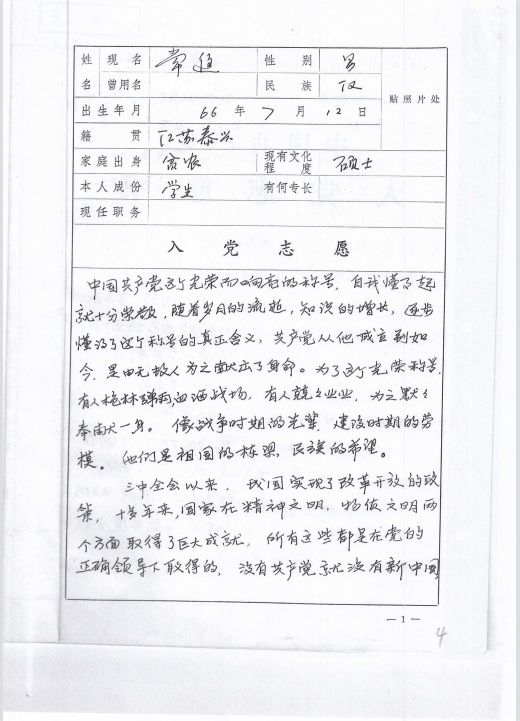 姓 现 名 常 性 别 男
名 曾用名 民 族 汉
贴 照 片 处
出生年月 66 年 7 月 12 日
籍 贯 江苏泰兴
家庭出身 贫农 现有文化程度 硕士
本人成份 学生 有何专长
现任职务
入 党 志 愿
中国共产党这个光荣而响亮的称号，自我懂事起
就十分崇敬，随着岁月的流逝，知识的增长，逐步
懂得了这个称号的真正含义，共产党从他成立到如
今，是由无数人为之献出了身命。为了这个光荣称号，
有人枪林弹雨血洒战场，有人兢兢业业，为之默默
奉献一身。像战争时期的先辈，建设时期的劳
模。他们是祖国的栋梁，民族的希望。
三中全会以来，我国实现了改革开放的政
策，十多年来，国家在精神文明，物质文明两
个方面取得了巨大成就，所有这些都是在党的
正确领导下取得的，没有共产党就没有新中国
— 1 —
4